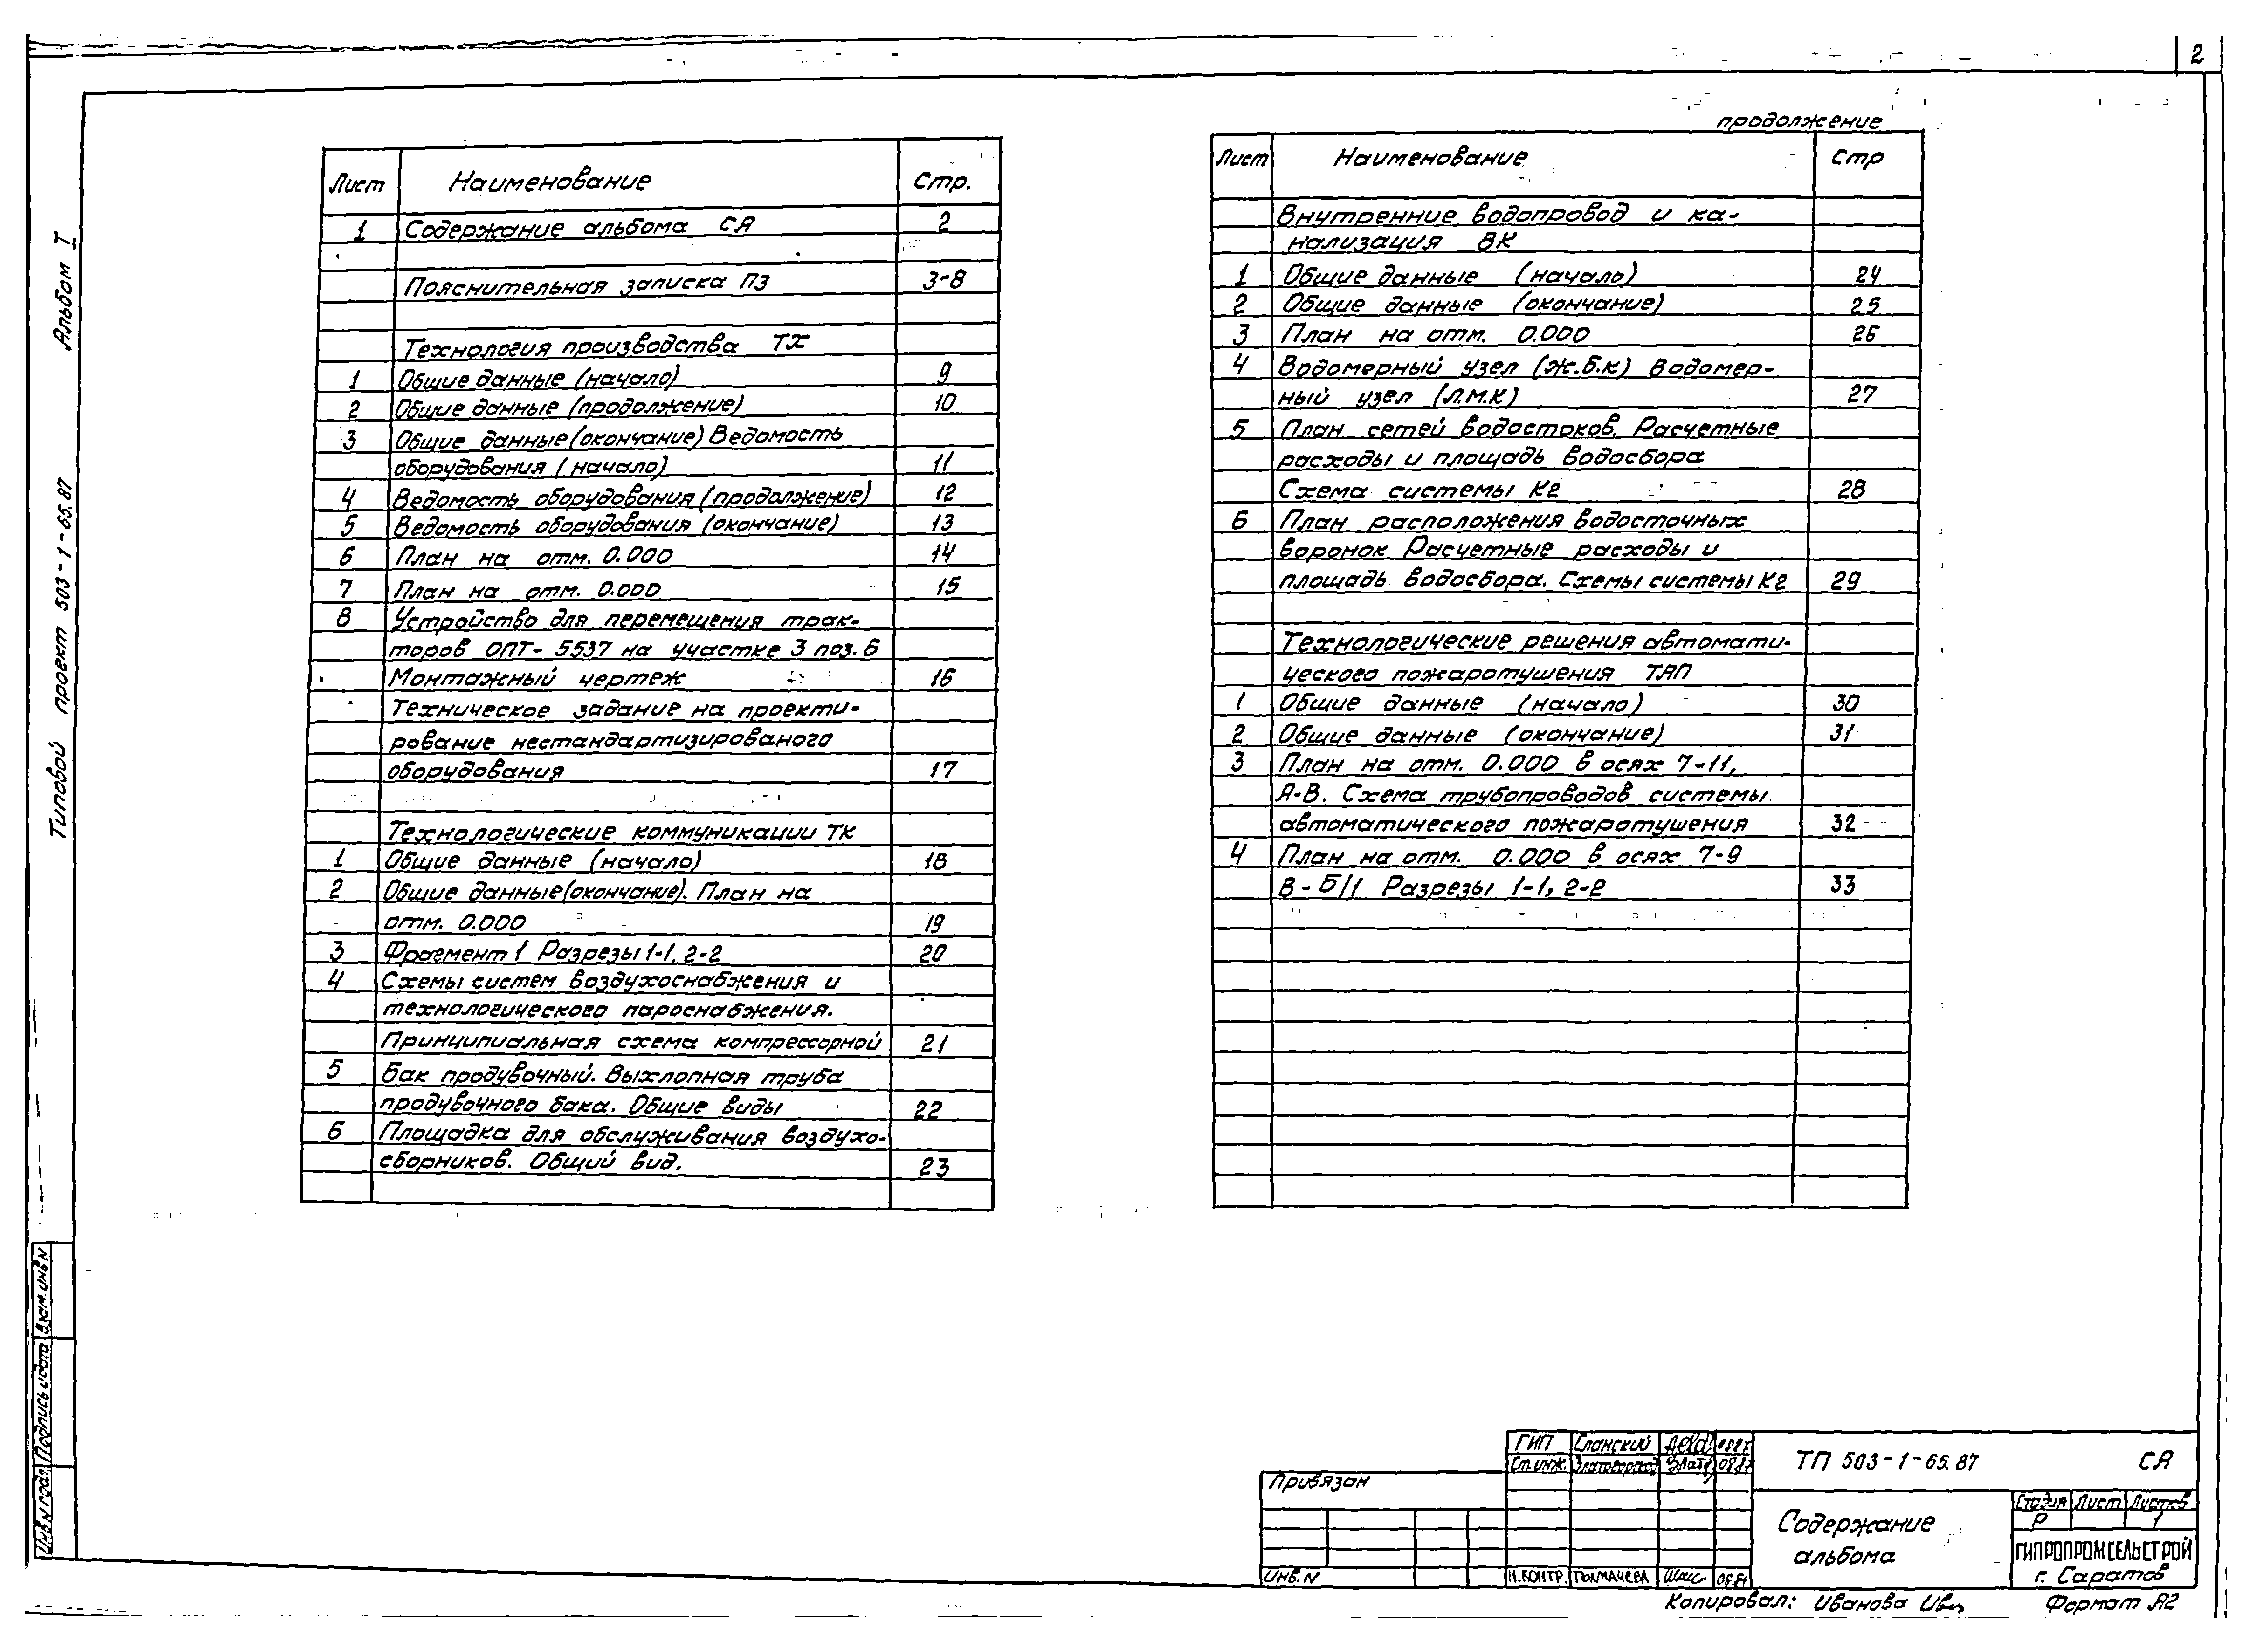 2
Альбом I
Типовой проект 503-1-65.87
Лист Наименование Стр.
1 Содержание альбома СА 2
Пояснительная записка ПЗ 3-8
Технология производства ТХ
1 Общие данные (начало) 9
2 Общие данные (продолжение) 10
3 Общие данные (окончание) Ведомость
оборудования (начало) 11
4 Ведомость оборудования (продолжение) 12
5 Ведомость оборудования (окончание) 13
6 План на отм. 0.000 14
7 План на отм. 0.000 15
8 Устройство для перемещения трак-
торов ОПТ-5537 на участке 3 поз. 6
Монтажный чертеж 16
Техническое задание на проекти-
рование нестандартизированого
оборудования 17
Технологические коммуникации ТК
1 Общие данные (начало) 18
2 Общие данные (окончание). План на
отм. 0.000 19
3 Фрагмент 1 Разрезы 1-1, 2-2 20
4 Схемы систем воздухоснабжения и
технологического пароснабжения.
Принципиальная схема компрессорной 21
5 Бак продувочный. Выхлопная труба
продувочного бака. Общие виды 22
6 Площадка для обслуживания воздухо-
сборников. Общий вид. 23
продолжение
Лист Наименование Стр
Внутренние водопровод и ка-
нализация ВК
1 Общие данные (начало) 24
2 Общие данные (окончание) 25
3 План на отм. 0.000 26
4 Водомерный узел (ж.б.к) Водомер-
ный узел (Л.М.К) 27
5 План сетей водостоков. Расчетные
расходы и площадь водосбора
Схема системы К2 28
6 План расположения водосточных
воронок Расчетные расходы и
площадь водосбора. Схемы системы К2 29
Технологические решения автомати-
ческого пожаротушения ТАП
1 Общие данные (начало) 30
2 Общие данные (окончание) 31
3 План на отм. 0.000 в осях 7-11,
А-В. Схема трубопроводов системы
автоматического пожаротушения 32
4 План на отм. 0.000 в осях 7-9
В-Б/1 Разрезы 1-1, 2-2 33
Инв. N подл. Подпись и дата Взам. инв. N
Привязан
Инв. N
ГИП Сланский 08.87
Ст. инж. 08.87
Н. КОНТР. ТОЛМАЧЕВА
ТП 503-1-65.87 СА
Содержание
альбома
Стадия Лист Листов
Р 1
ГИПРОПРОМСЕЛЬСТРОЙ
г. Саратов
Копировал: Иванова
Формат А2